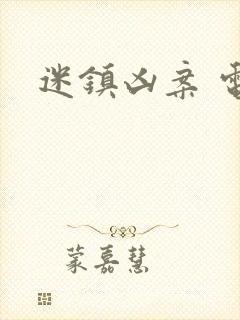 迷鎮凶案 電
蒙嘉慧